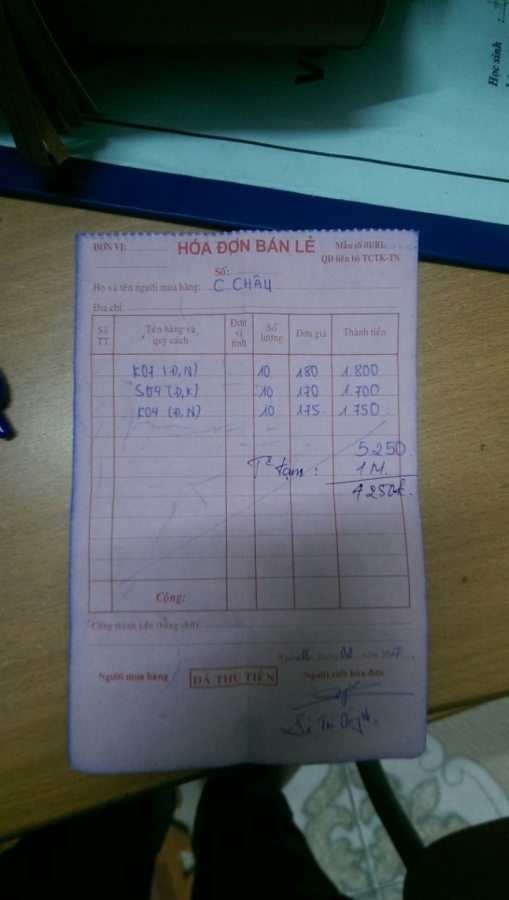 Học sinh
ĐƠN VỊ:
HÓA ĐƠN BÁN LẺ
Mẫu số 01/BL
QĐ liên bộ TCTK-TN
Số:
Họ và tên người mua hàng: C. CHÂU
Địa chỉ:
Số TT Tên hàng và quy cách Đơn vị tính Số lượng Đơn giá Thành tiền
K07 (Đ,N) 10 180 1.800
S04 (Đ,K) 10 170 1.700
K04 (Đ,N) 10 175 1.750
5.250
tạm : 1M
4250k.
Cộng:
Cộng thành tiền (bằng chữ):
tháng 02 năm 2017
Người mua hàng ĐÃ THU TIỀN Người viết hóa đơn